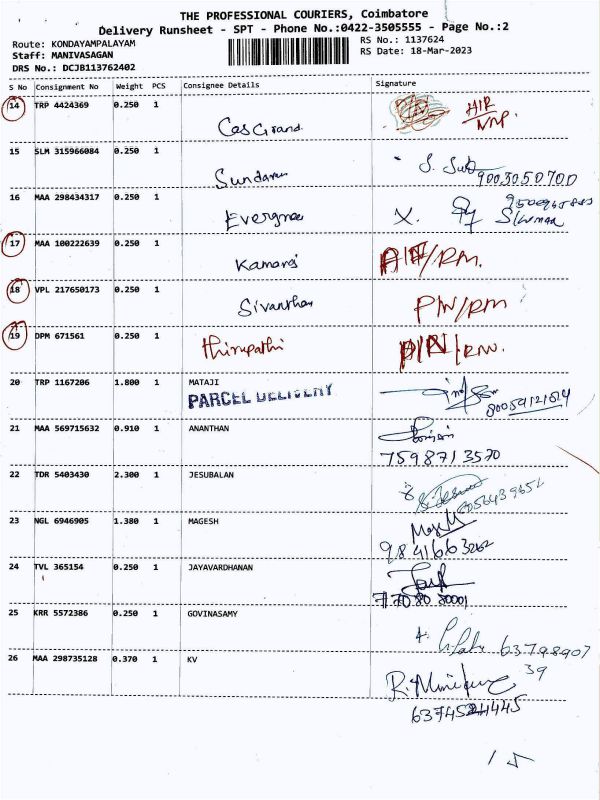 THE PROFESSIONAL COURIERS, Coimbatore
Delivery Runsheet - SPT - Phone No.:0422-3505555 - Page No.:2
Route: KONDAYAMPALAYAM
Staff: MANIVASAGAN
DRS No.: DCJB113762402
RS No.: 1137624
RS Date: 18-Mar-2023
S No Consignment No Weight PCS Consignee Details Signature
14 TRP 4424369 0.250 1
CasGrand
15 SLM 315966084 0.250 1
Sundaram
9003050700
16 MAA 298434317 0.250 1
Evergree
X.
17 MAA 100222639 0.250 1
Kamaraj
/RM.
18 VPL 217650173 0.250 1
Sivanthan
PN/RM
19 DPM 671561 0.250 1
thirupathi
20 TRP 1167206 1.800 1 MATAJI
PARCEL DELIVERY
21 MAA 569715632 0.910 1 ANANTHAN
7598713570
22 TDR 5403430 2.300 1 JESUBALAN
23 NGL 6946905 1.380 1 MAGESH
9841663262
24 TVL 365154 0.250 1 JAYAVARDHANAN
25 KRR 5572386 0.250 1 GOVINASAMY
63798907
39
26 MAA 298735128 0.370 1 KV